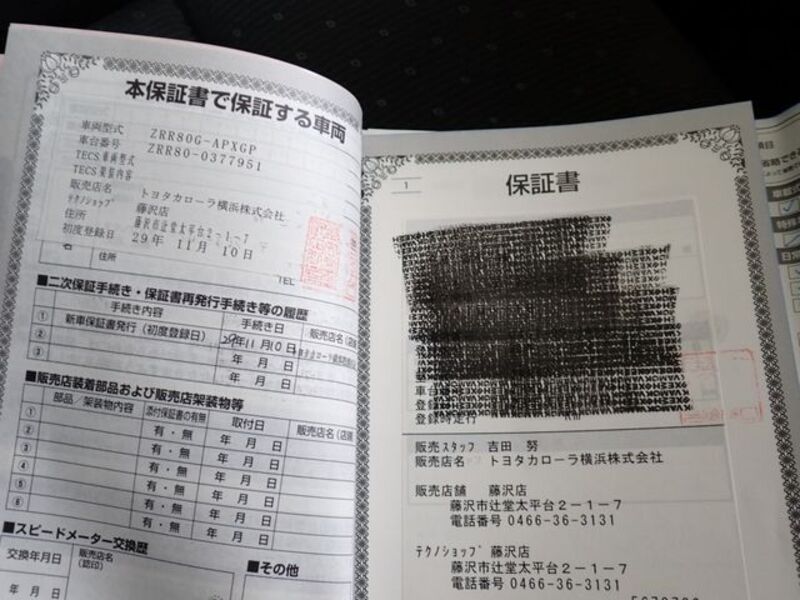 本保証書で保証する車両
車両型式 ZRR80G-APXGP
車台番号 ZRR80-0377951
TECS車両型式
TECS架装内容
販売店名 トヨタカローラ横浜株式会社
テクノショップ 藤沢店
住所 藤沢市辻堂太平台2-1-7
初度登録日 29年 11月 10日
名
住所
TEL
■二次保証手続き・保証書再発行手続き等の履歴
手続き内容 手続き日 販売店名(店
① 新車保証書発行(初度登録日) 29年11月10日
② 年 月 日
③ 年 月 日
■販売店装着部品および販売店架装物等
部品/架装物内容 添付保証書の有無 取付日 販売店名(店
① 有・無 年 月 日
② 有・無 年 月 日
③ 有・無 年 月 日
④ 有・無 年 月 日
⑤ 有・無 年 月 日
⑥ 有・無 年 月 日
■スピードメーター交換歴
交換年月日 販売店名
(認印)
年 月 日
■その他
1
保証書
車台
登録
登録時走行 km
販売スタッフ 吉田 努
販売店名 トヨタカローラ横浜株式会社
販売店舗 藤沢店
藤沢市辻堂太平台2-1-7
電話番号 0466-36-3131
テクノショップ 藤沢店
藤沢市辻堂太平台2-1-7
電話番号 0466-36-3131
項目
省略でき